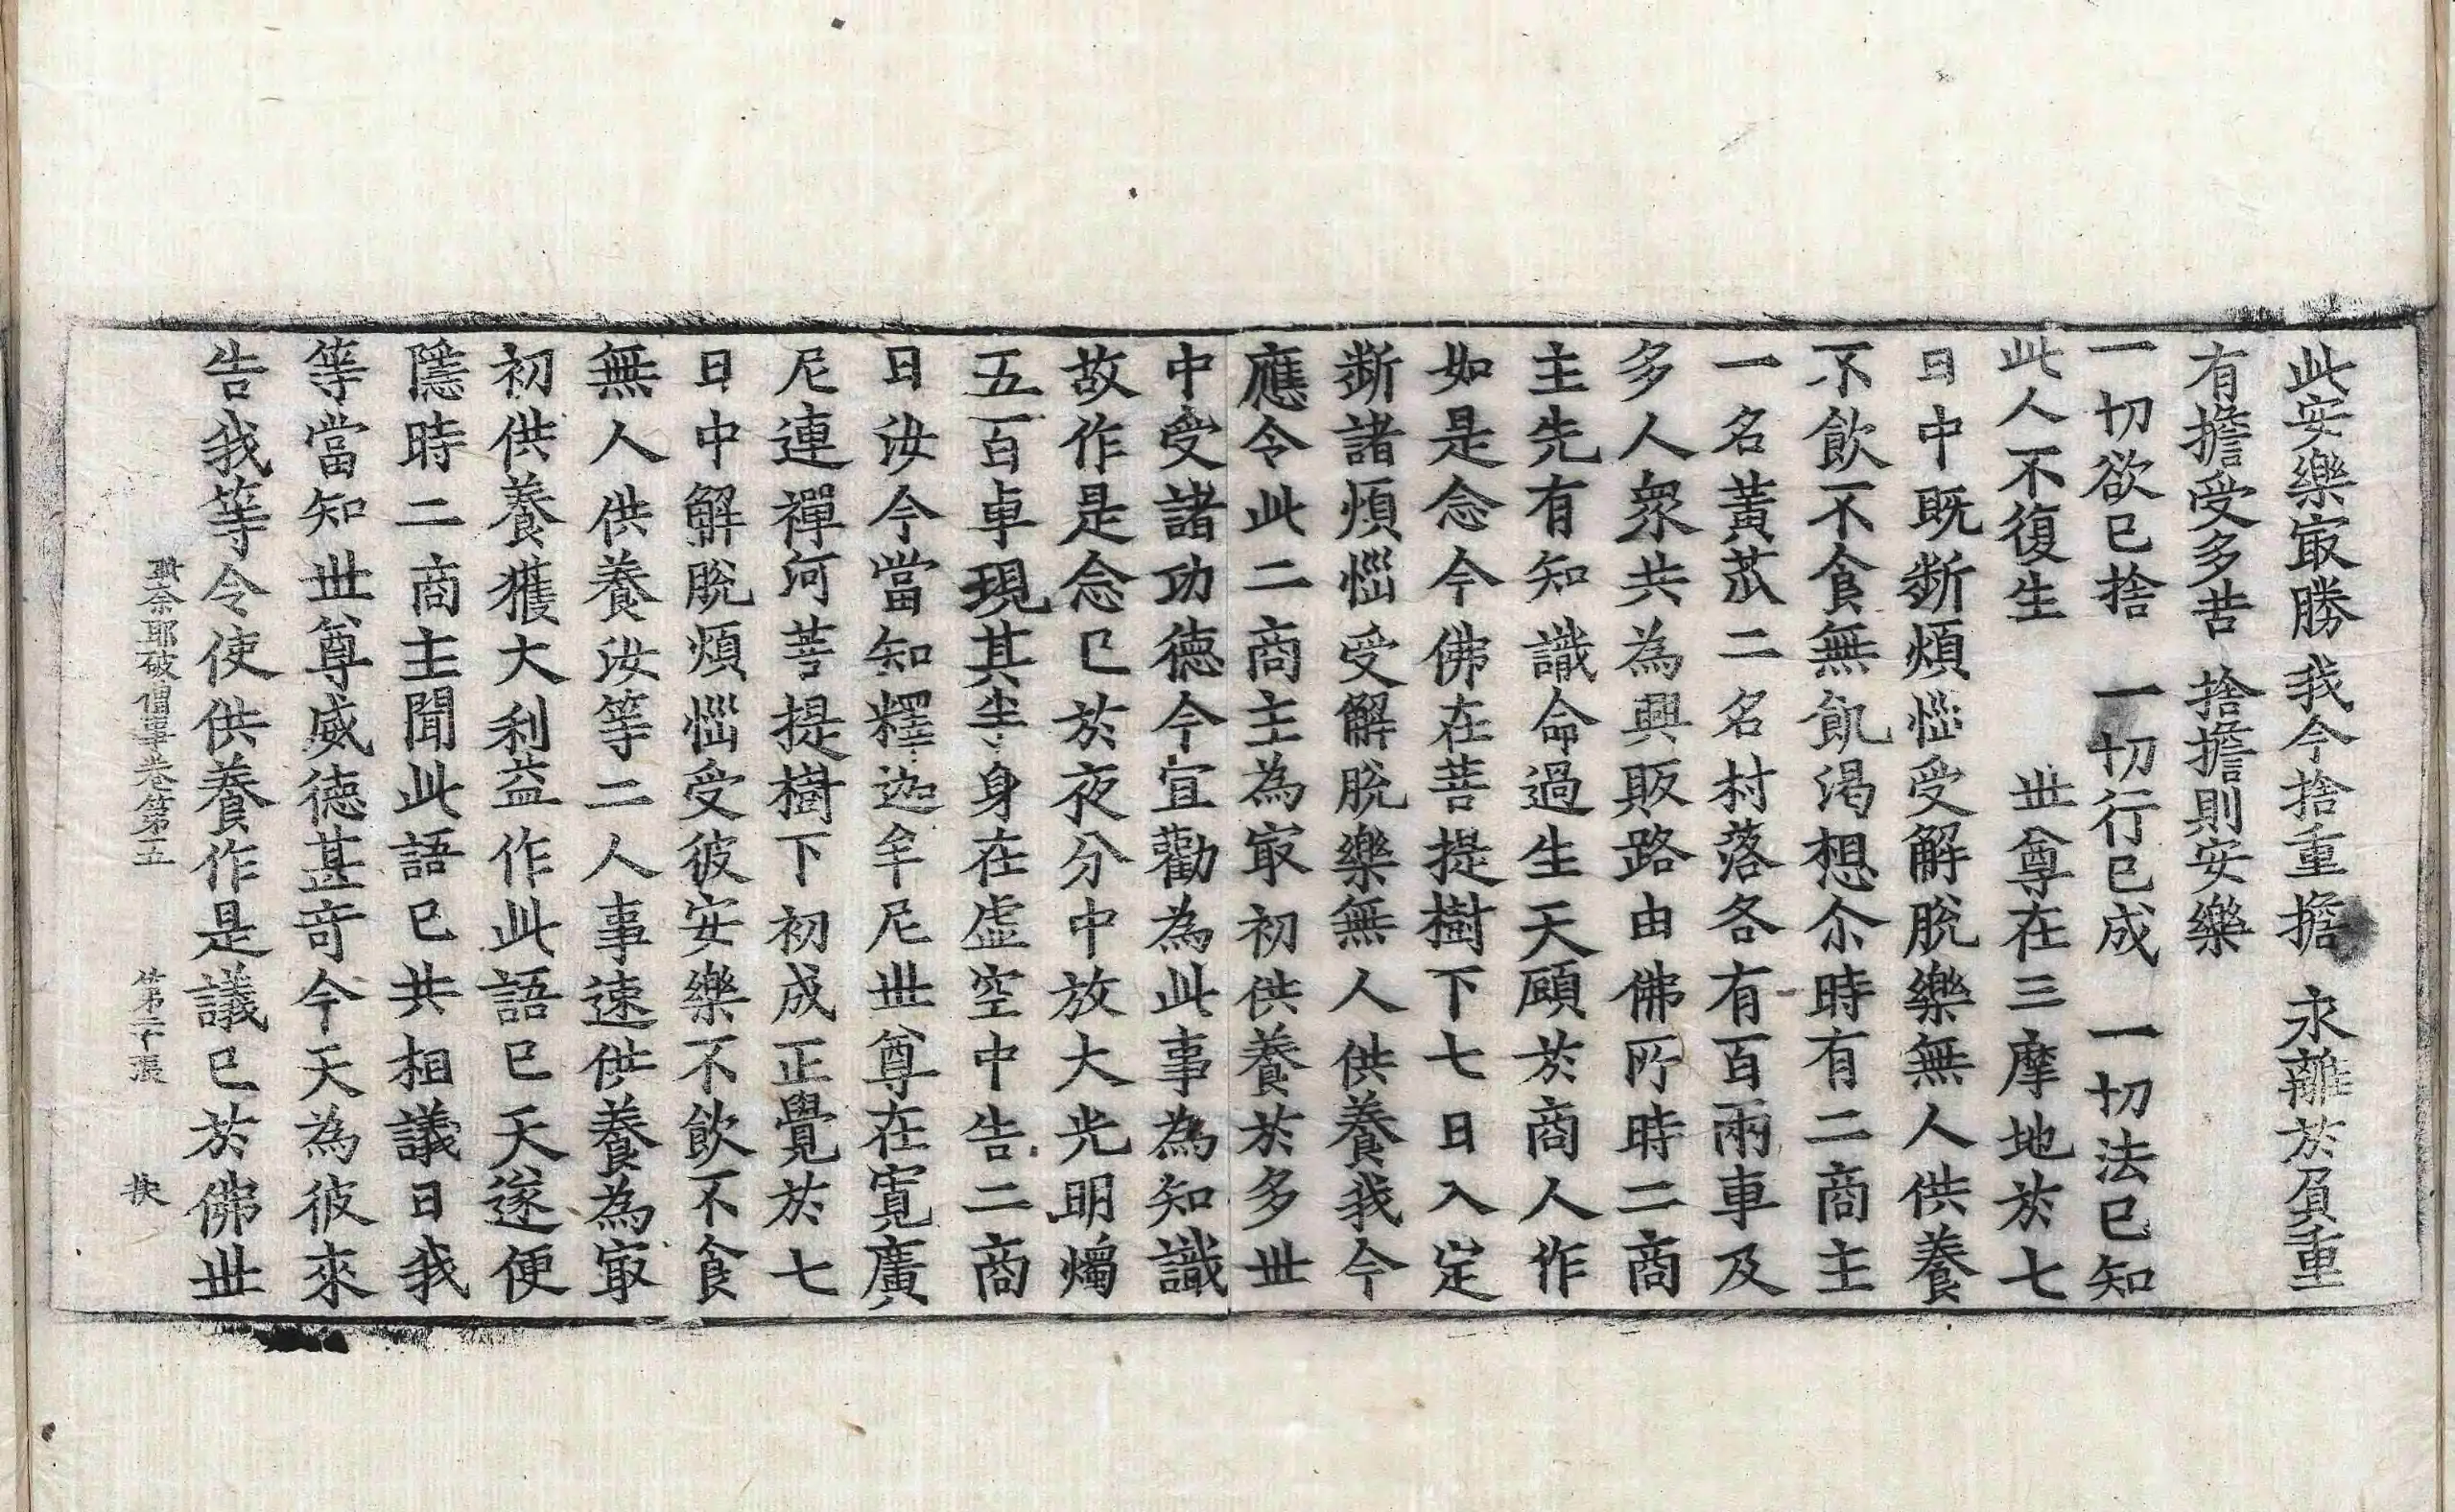 此安樂㝡勝　我今捨重擔　永離於負重
有擔受多苦　捨擔則安樂
一切欲已捨　一切行已成　一切法已知
此人不復生　　世尊在三摩地於七
日中既断煩惱受解脫樂無人供養
不飲不食無飢渴想尒時有二商主
一名黃苽二名村落各有百兩車及
多人衆共為興販路由佛所時二商
主先有知識命過生天願於商人作
如是念今佛在菩提樹下七日入㝎
断諸煩惱受解脫樂無人供養我今
應令此二商主為㝡初供養於多世
中受諸功德今宜勸為此事為知識
故作是念已於夜分中放大光明燭
五百車現其半身在虛空中告二商
曰汝今當知釋迦牟尼世尊在寬廣
尼連禪河菩提樹下初成正覺於七
日中解脫煩惱受彼安樂不飲不食
無人供養汝等二人事速供養為㝡
初供養獲大利益作此語已天遂便
隱時二商主聞此語已共相議曰我
等當知世尊威德甚奇今天為彼來
告我等令使供養作是議已於佛世
耶破僧事卷第五　第二十張